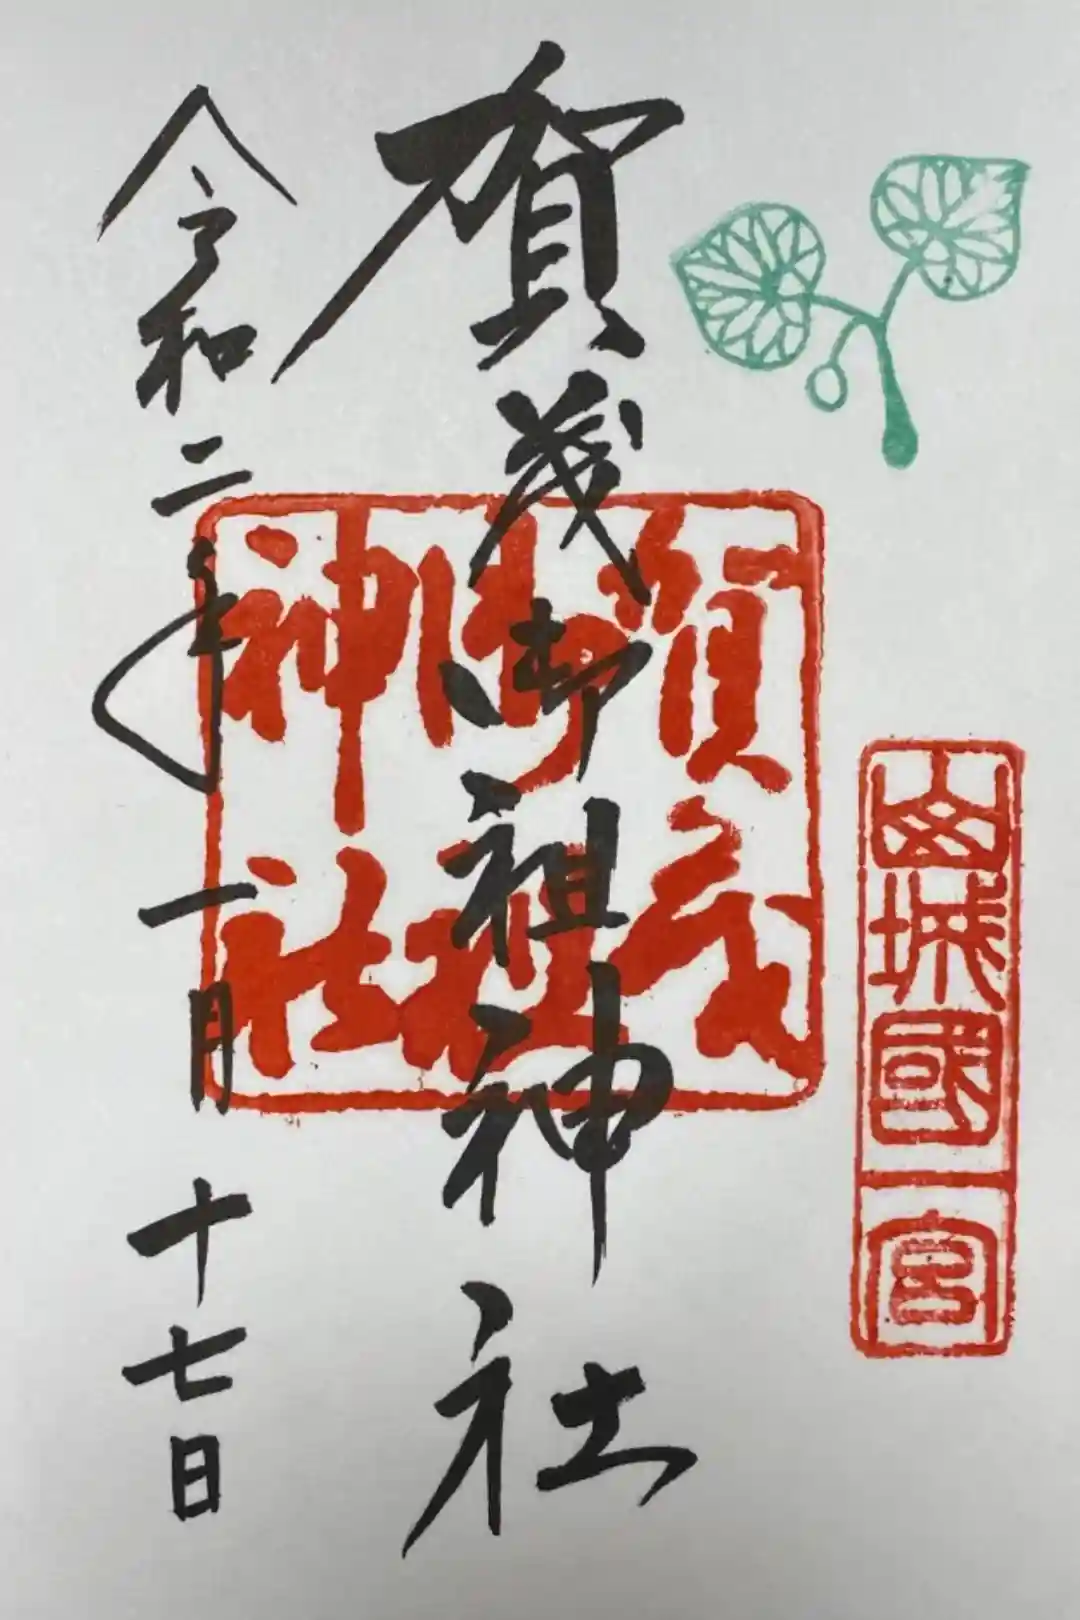 山城國一宮
賀茂御祖神社
賀茂
御祖
神社
令和二年一月十七日